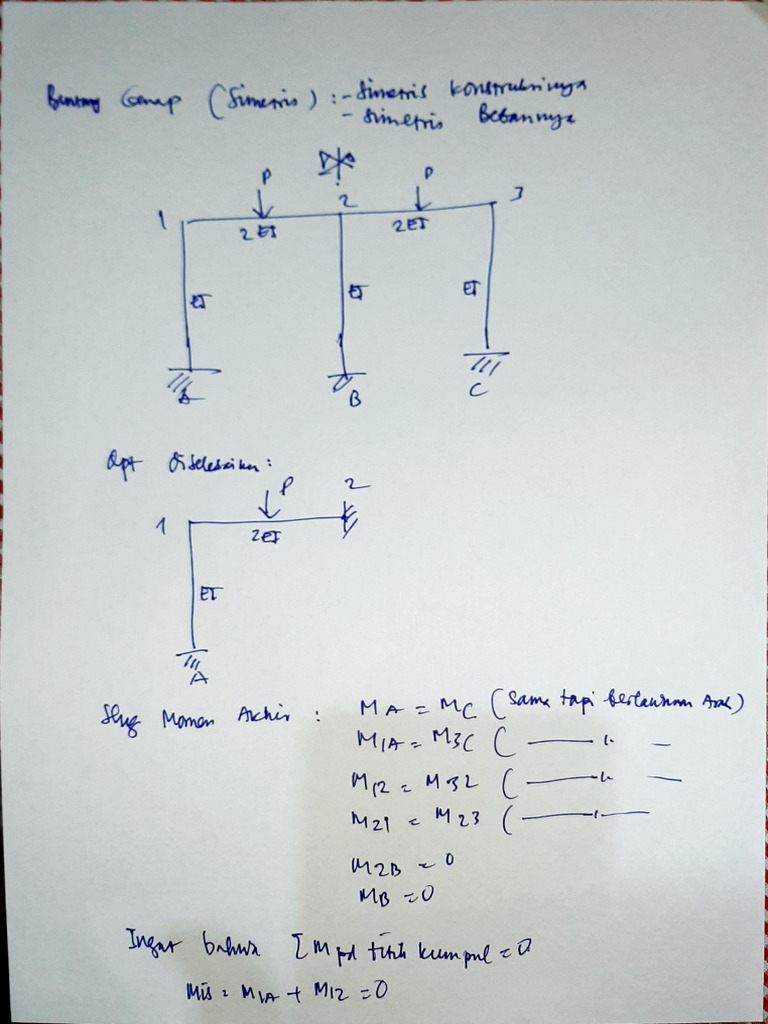 Bentang Genap (Simetris) : - Simetris konstruksinya
- Simetris Bebannya
P P
1 2 3
2EI 2EI
EI EI EI
A B C
Dpt Diselesaikan :
P 2
1
2EI
EI
A
Shg Momen Akhir : MA = MC (Sama tapi berlawanan Arah)
M1A = M3C ( — 〃 —
M12 = M32 ( — 〃 —
M21 = M23 ( — 〃 —
M2B = 0
MB = 0
Ingat bahwa ΣM pd titik kumpul = 0
Mis : M1A + M12 = 0